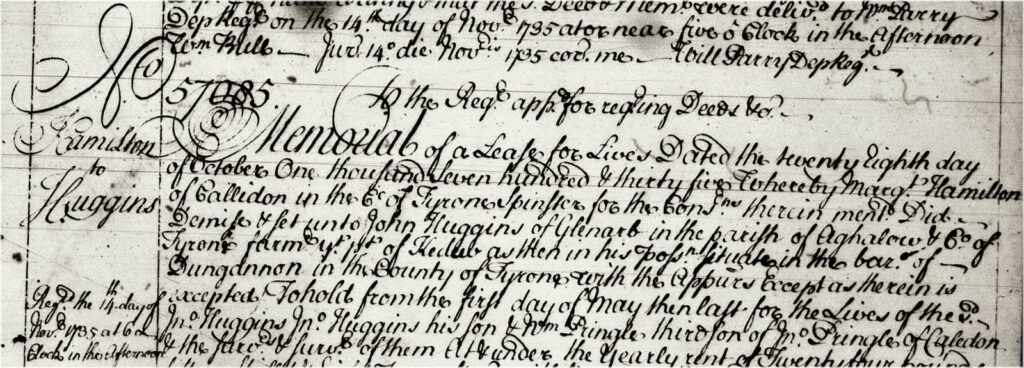 Deeds & Mem.ls were deliv.d to Wm Parry
Dep Reg.r on the 14th day of Nov.r 1735 at or near five o Clock in the Afternoon
Jur. 14.o die Nov.ris 1735 cor. me Will Parry Dep Reg.r
No
57085. To the Reg.r app.d for reg.ing Deeds &c.
Hamilton
to
Huggins
Memorial of a Lease for Lives Dated the twenty Eighth day
of October One thousand seven hundred & thirty five Whereby Marg.t Hamilton
of Callidon in the Co. of Tyrone Spinster for the Cons.ns therein ment.d Did
Demise & set unto John Huggins of Glenarb in the parish of Aghalow & Co. of
Tyrone farm.r y.t p.t of as then in his poss.n situate in the bar.y of
Dungannon in the County of Tyrone with the Appurs Except as therein is
excepted To hold from the first day of May then last for the Lives of the s.d
Jn.o Huggins Jn.o Huggins his son & Wm Pringle third son of Jn.o Pringle of Caledon
& the surv.rs & surv.r of them At & under the Yearly rent of Twenty four pounds
Reg.d the 14th day of
Nov.r 1735 at 6 o
Clock in the Afternoon